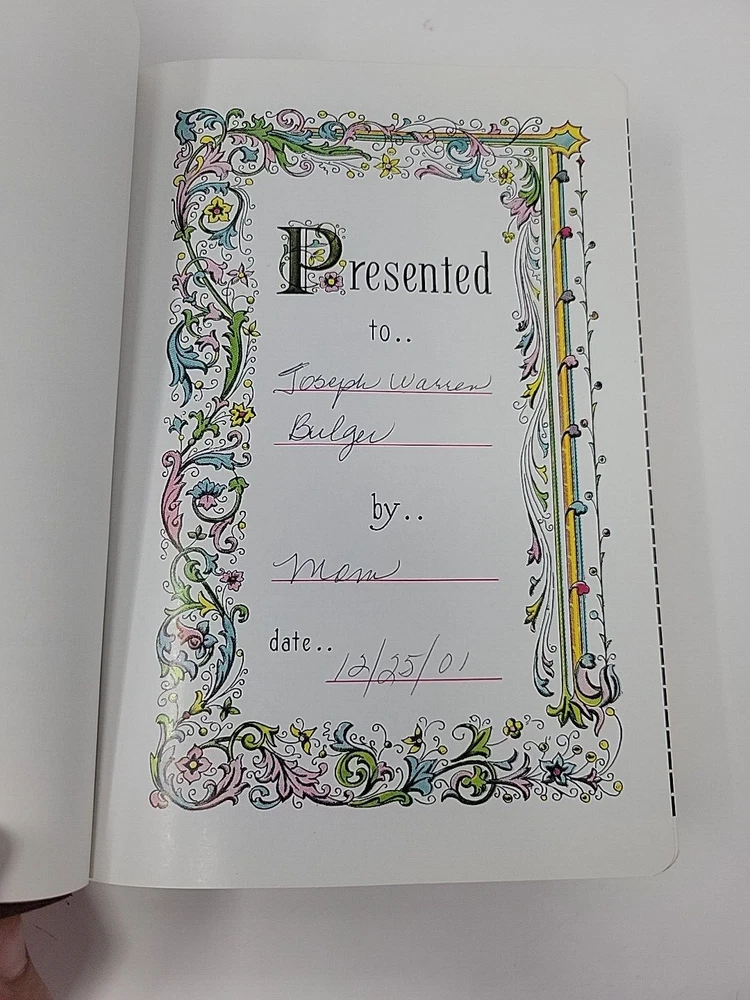 Presented
to..
Joseph Warren
Bulger
by..
Mom
date.. 12/25/01